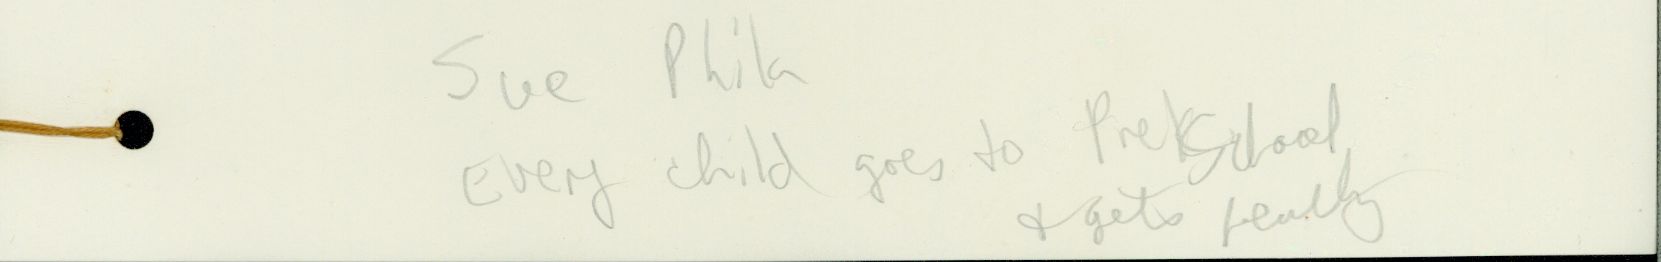 Sue Phila
Every child goes to PreKSchool
& gets ready